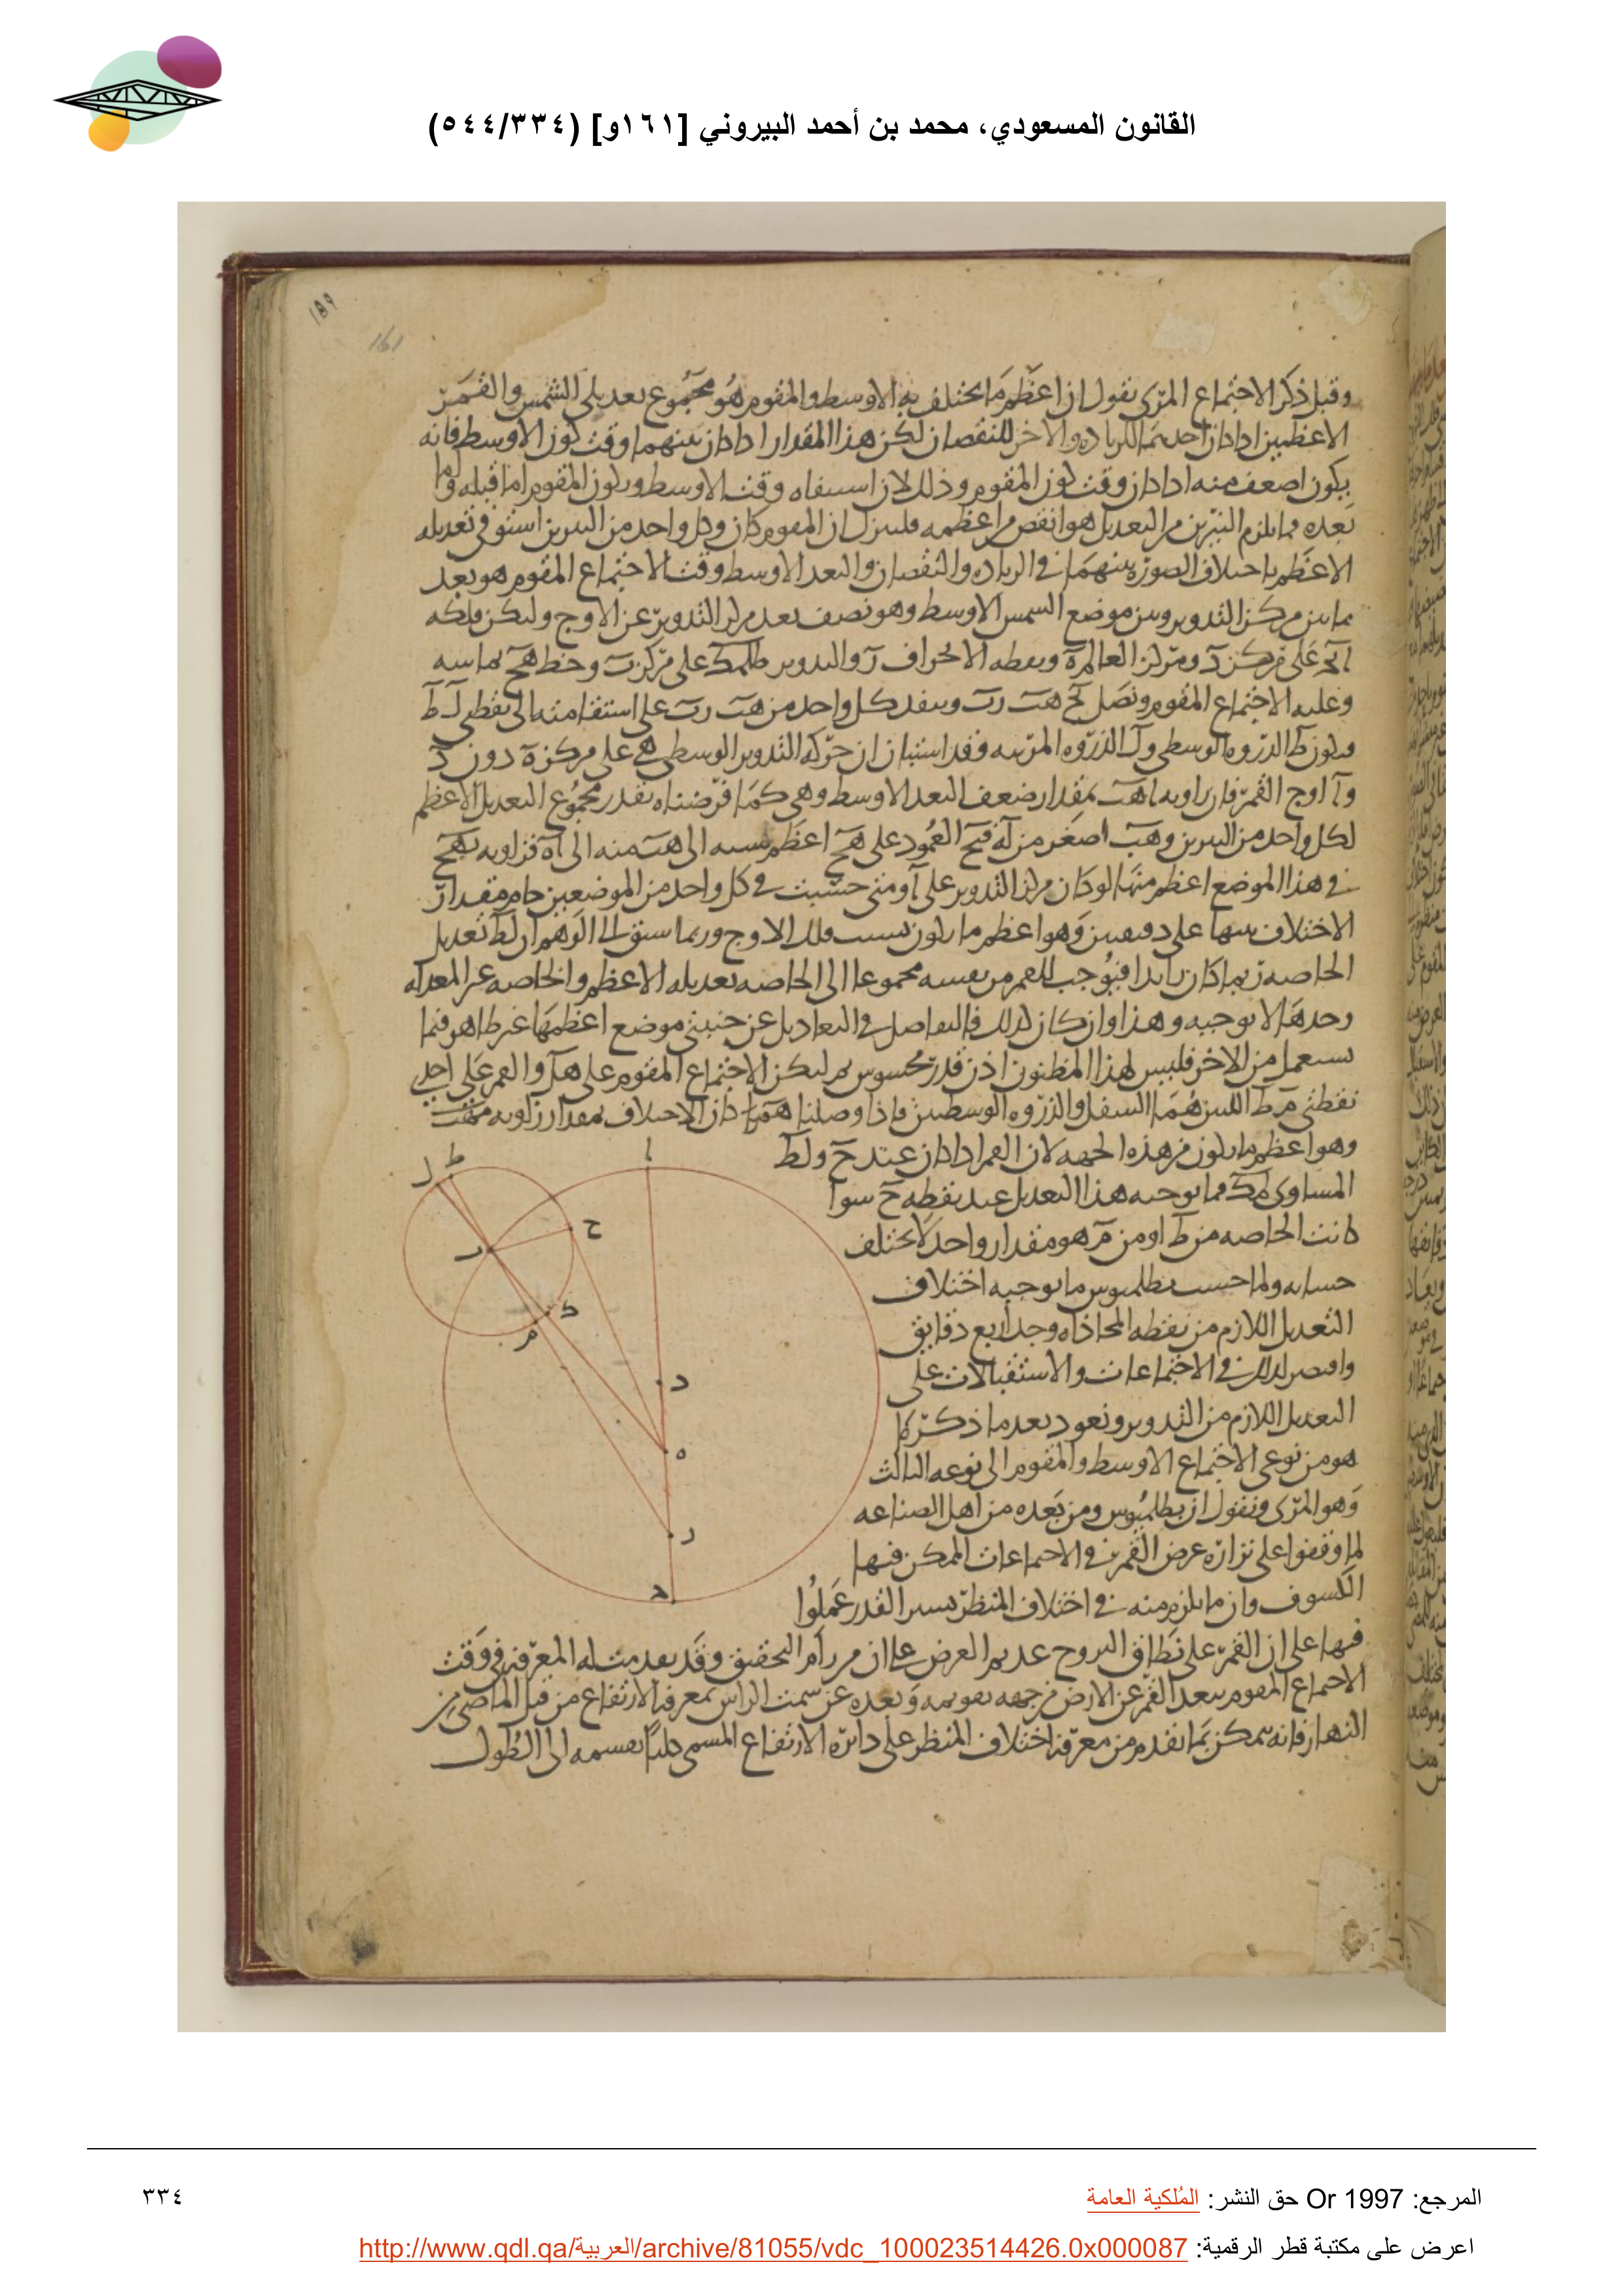 القانون المسعودي، محمد بن أحمد البيروني [١٦١و] (٥٤٤/٣٣٤)
١٥٩
161
وقبل ذكر الاجتماع المرئى نقول ان اعظم ما يختلف به الاوسط والمقوم هو مجموع تعديلى الشمس والقمر
الاعظمين اذا كان احدهما للزياده والاخر للنقصان لكن هذا المقدار اذا كان بينهما وقت كون الاوسط فانه
يكون اضعف منه اذا كان وقت كون المقوم وذلك لان وقت الاوسط ويكون المقوم اما قبله واما
بعده فما يلزم النيرين من التعديل هو انقص من اعظمه فلننزل ان المقوم كان وكل واحد من النيرين استوفى تعديله
الاعظم باختلاف الصورة بينهما فى الزياده والنقصان والبعد الاوسط وقت الاجتماع المقوم هو بعد
ما بين مركز التدوير وبين موضع الشمس الاوسط وهو نصف بعد مركز التدوير عن الاوج وليكن فلكه
على مركز د ومركز العالم ه ونقطه الانحراف ر والتدوير طلمك على مركز ب وخط هح يماسه
وعليه الاجتماع المقوم ونصل بح هب رب وينفذ كل واحد من هب رب على استقامته الى نقطتى ل ط
فيكون ط الذروه الوسطى و ل الذروه المرئيه وقد استبان ان حركه التدوير الوسطى هى على مركز ه دون د
و ا اوج القمر فان زاويه اهب بمقدار ضعف البعد الاوسط وهى كما فرضناه بقدر مجموع التعديل الاعظم
لكل واحد من النيرين وهب اصغر من اه فبح العمود على هح اعظم نسبه الى هب منه الى اه فزاويه بهح
فى هذا الموضع اعظم منها لو كان مركز التدوير على ا ومتى حسبت فى كل واحد من الموضعين حام مقدار
الاختلاف بينها على دقيقتين وهو اعظم ما يكون بسبب فلك الاوج وربما سبق الى الوهم ان لط تعديل
الخاصه ربما كان زايدا فيوجب للقمر من نفسه مجموعا الى الخاصه تعديله الاعظم والخاصه غير المعدله
وحدها لا توجبه وهذا وان كان كذلك فالتفاضل فى التعاديل عن جنبتى موضع اعظمها غير ظاهر فيما
يستعمل من الاخر فليس لهذا المظنون اذن قدر محسوس ثم ليكن الاجتماع المقوم على هل والقمر على احدى
نقطتى م ط اللتين هما السفل والذروه الوسطيتين فاذا وصلنا كان الاختلاف بمقدار زاويه
وهو اعظم ما يكون من هذه الجهه لان القمر اذا كان عند ح ولط
المساوى لمك فما يوجبه هذا التعديل عند نقطه ح سوا
كانت الخاصه من ط او من م هو مقدار واحد لا يختلف
حسابه ولما حسب بطلميوس ما يوجبه اختلاف
التعديل اللازم من نقطه المحاذاه وجد اربع دقايق
واقتصر لذلك فى الاجتماعات والاستقبالات على
التعديل اللازم من التدوير ونعود بعد ما ذكر كما
هو من نوعى الاجتماع الاوسط والمقوم الى نوعه الثالث
وهو المرئى ونقول ان بطلميوس ومن بعده من اهل الصناعه
لما وقفوا على نزاره عرض القمر فى الاجتماعات الممكن فيها
الكسوف وان ما يلزم منه فى اختلاف المنظر يسير القدر عملوا
فيها على ان القمر على نطاق البروج عديم العرض على ان من رام التحقيق وقد بعدمت له المعرفه فى وقت
الاجتماع المقوم ببعد القمر عن الارض من جهه تقويمه وبعده عن سمت الراس بمعرفه الارتفاع من قبل الماضى من
النهار فانه يمكن بما تقدم من معرفه اختلاف المنظر على دائره الارتفاع المسمى كليا تقسيمه الى الطول
ا
ط
ل
ح
ب
ك
م
د
ه
ر
ح
المرجع: Or 1997 حق النشر: المُلكية العامة
٣٣٤
اعرض على مكتبة قطر الرقمية: http://www.qdl.qa/العربية/archive/81055/vdc_100023514426.0x000087